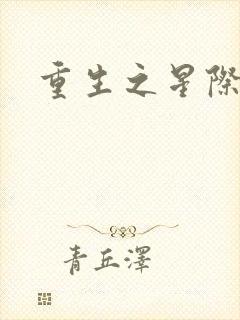 重生之星際
青丘澤